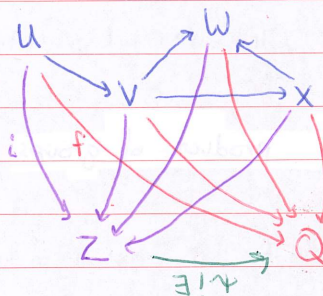 U W
V X
i f
Z Q
∃!ψ